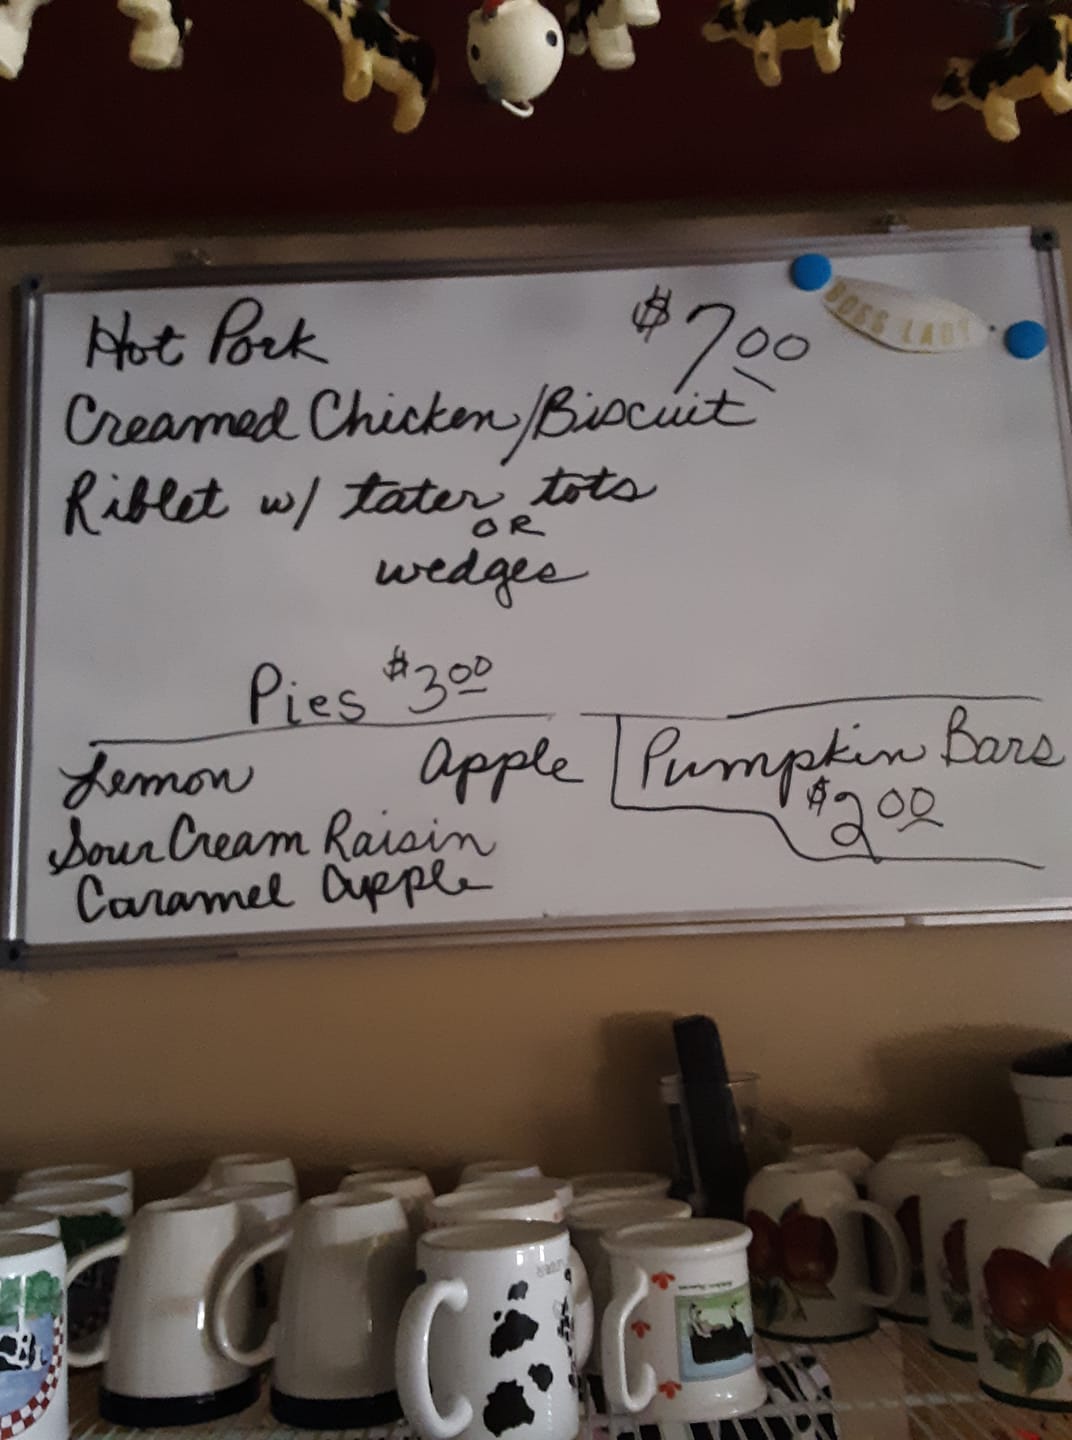 Hot Pork $7.00
BOSS LADY
Creamed Chicken/Biscuit
Riblet w/ tater tots
OR
wedges
Pies $3.00
Lemon Apple
Sour Cream Raisin
Caramel apple
Pumpkin Bars
$2.00